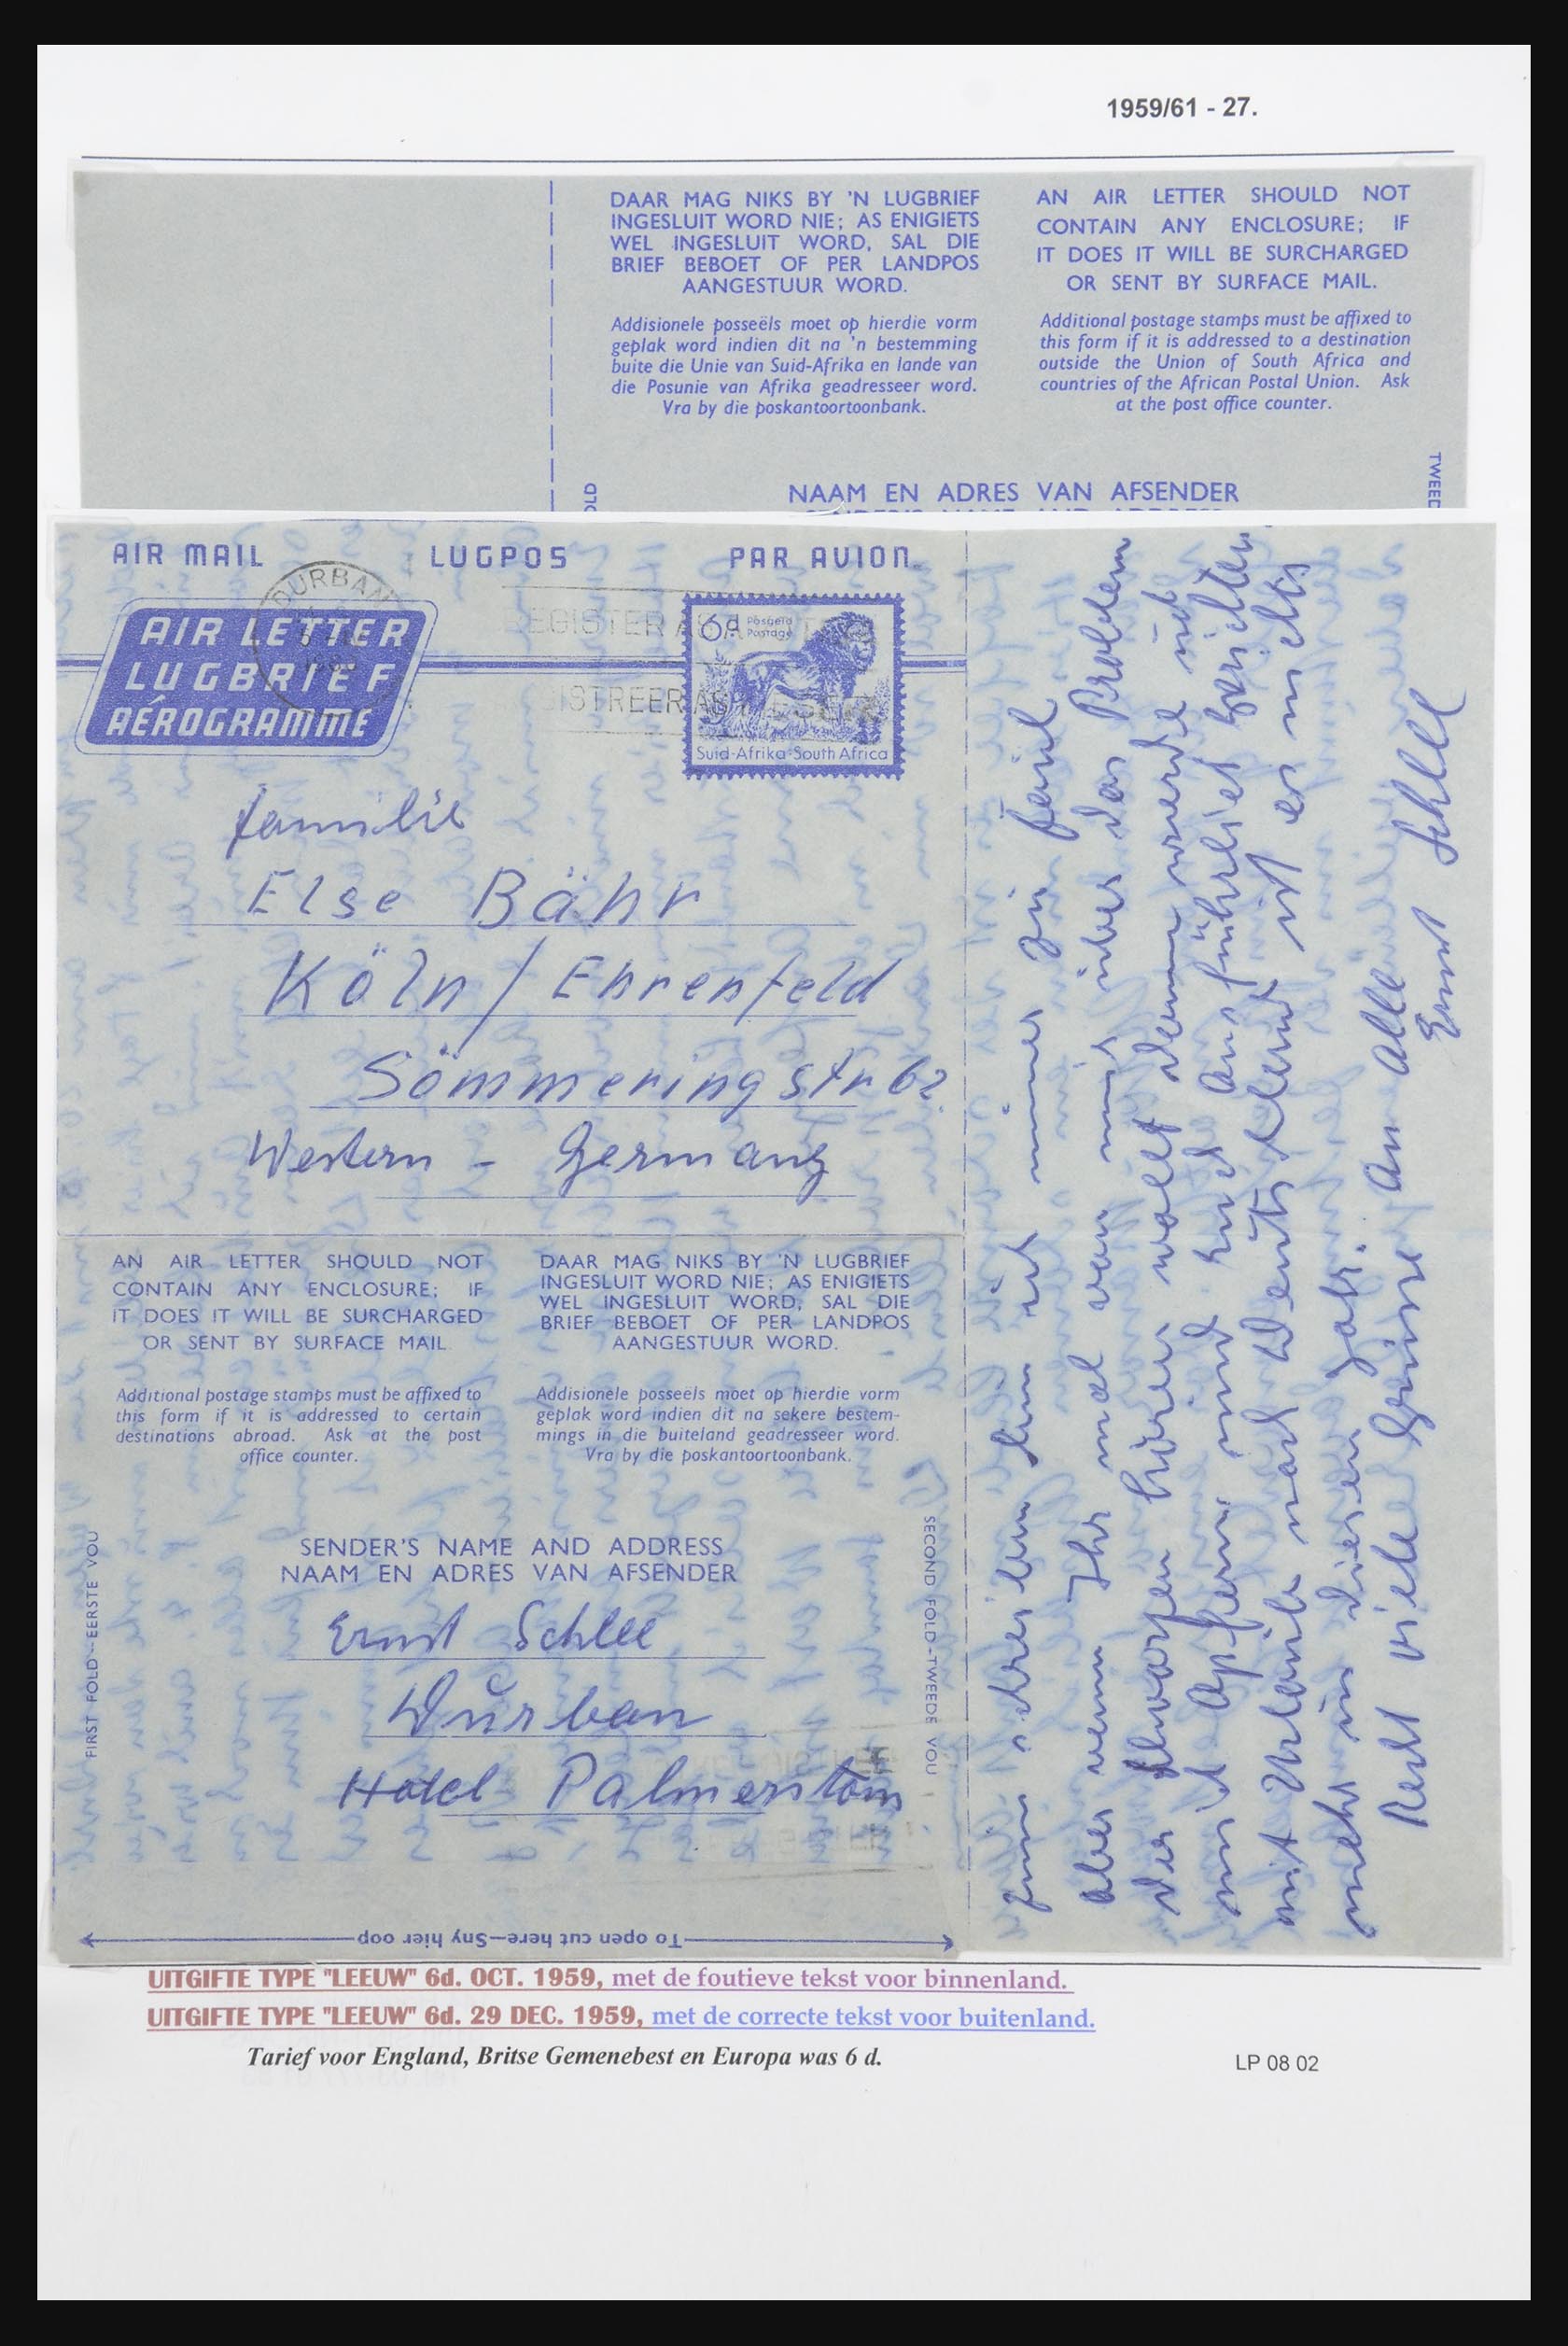 1959/61 - 27.
DAAR MAG NIKS BY 'N LUGBRIEF
INGESLUIT WORD NIE; AS ENIGIETS
WEL INGESLUIT WORD, SAL DIE
BRIEF BEBOET OF PER LANDPOS
AANGESTUUR WORD.
Addisionele posseëls moet op hierdie vorm
geplak word indien dit na 'n bestemming
buite die Unie van Suid-Afrika en lande van
die Posunie van Afrika geadresseer word.
Vra by die poskantoortoonbank.
AN AIR LETTER SHOULD NOT
CONTAIN ANY ENCLOSURE; IF
IT DOES IT WILL BE SURCHARGED
OR SENT BY SURFACE MAIL.
Additional postage stamps must be affixed to
this form if it is addressed to a destination
outside the Union of South Africa and
countries of the African Postal Union. Ask
at the post office counter.
NAAM EN ADRES VAN AFSENDER
AIR MAIL LUGPOS PAR AVION
DURBAN
AIR LETTER
LUGBRIEF
AÉROGRAMME
REGISTER AS
REGISTREER AS
6d Posgeld
Postage
Suid-Afrika South Africa
Familie
Else Bähr
Köln / Ehrenfeld
Sömmeringstr 62
Western - Germany
AN AIR LETTER SHOULD NOT
CONTAIN ANY ENCLOSURE; IF
IT DOES IT WILL BE SURCHARGED
OR SENT BY SURFACE MAIL
Additional postage stamps must be affixed to
this form if it is addressed to certain
destinations abroad. Ask at the post
office counter.
DAAR MAG NIKS BY 'N LUGBRIEF
INGESLUIT WORD NIE; AS ENIGIETS
WEL INGESLUIT WORD, SAL DIE
BRIEF BEBOET OF PER LANDPOS
AANGESTUUR WORD.
Addisionele posseëls moet op hierdie vorm
geplak word indien dit na sekere bestem-
mings in die buiteland geadresseer word.
Vra by die poskantoortoonbank.
FIRST FOLD—EERSTE VOU
SECOND FOLD—TWEEDE VOU
SENDER'S NAME AND ADDRESS
NAAM EN ADRES VAN AFSENDER
Ernst Schlee
Durban
Hotel Palmerston
To open cut here—Sny hier oop
zum schreiben bin ich immer zu faul
aber wenn Ihr mal von mir über das Problem
der Schwarzen hören wollt dann werde ich
mich opfern und Euch ausführlich berichten
mit Urlaub nach Deutschland ist es nichts
mehr in diesem Jahr.
Recht viele Grüsse an alle
Ernst Schlee
UITGIFTE TYPE "LEEUW" 6d. OCT. 1959, met de foutieve tekst voor binnenland.
UITGIFTE TYPE "LEEUW" 6d. 29 DEC. 1959, met de correcte tekst voor buitenland.
Tarief voor England, Britse Gemenebest en Europa was 6 d.
LP 08 02